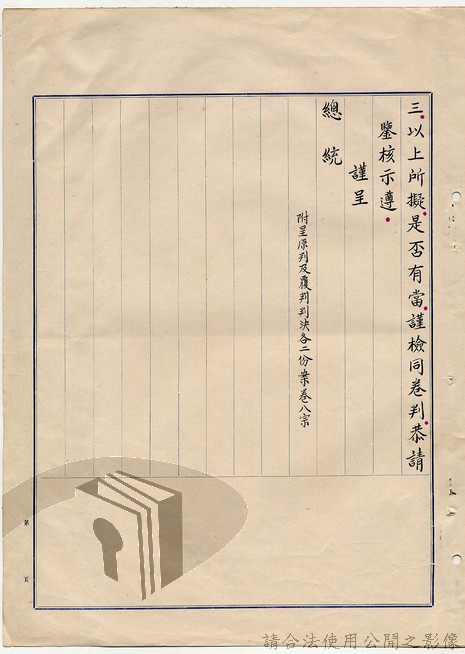 三、以上所擬，是否有當，謹檢同卷判，恭請
鑒核示遵。
謹呈
總統
附呈原判及覆判判決各二份案卷八宗
第 頁
請合法使用公開之影像